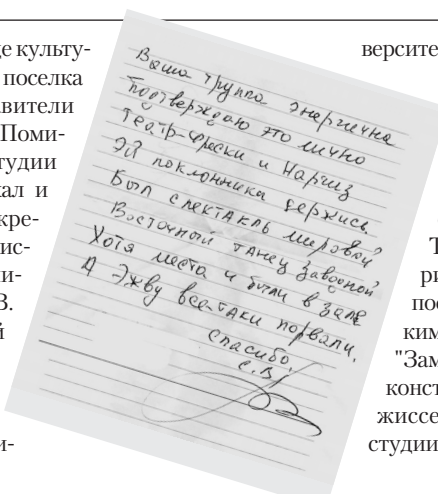 це культу-
поселка
авители
Поми-
тудии
кал и
кре-
ис-
ни-
В.
й
и-
Ваша группа энергична
Подтверждаю это лично
Театр-фрески и Наргиз
Эй поклонника держись.
Был спектакль мировой
Восточный танец заводной
Хотя места и были в зале
А Эжву все-таки порвали.
спасибо.
С.В
версите
Т
ри
пос
ким
"Зам
конст
жиссе
студии